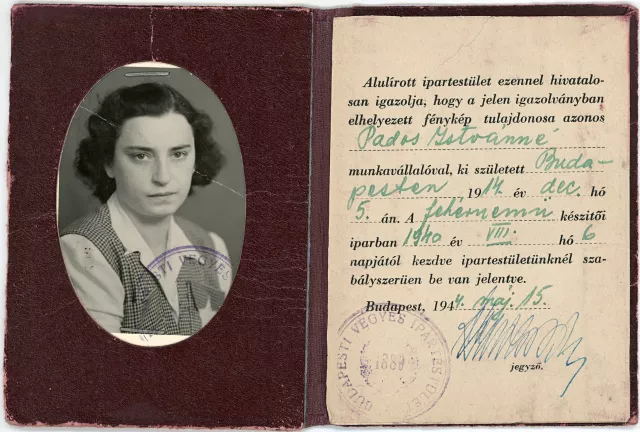 PESTI VEGYES
Alulírott ipartestület ezennel hivatalo-
san igazolja, hogy a jelen igazolványban
elhelyezett fénykép tulajdonosa azonos
Pados Istvánné
munkavállalóval, ki született Buda-
pesten 1914 év dec. hó
5. án. A fehérnemű készítői
iparban 1940 év VIII. hó 6
napjától kezdve ipartestületünknél sza-
bályszerüen be van jelentve.
Budapest, 1944. máj. 15.
jegyző.
BUDAPESTI VEGYES IPARTESTÜLET